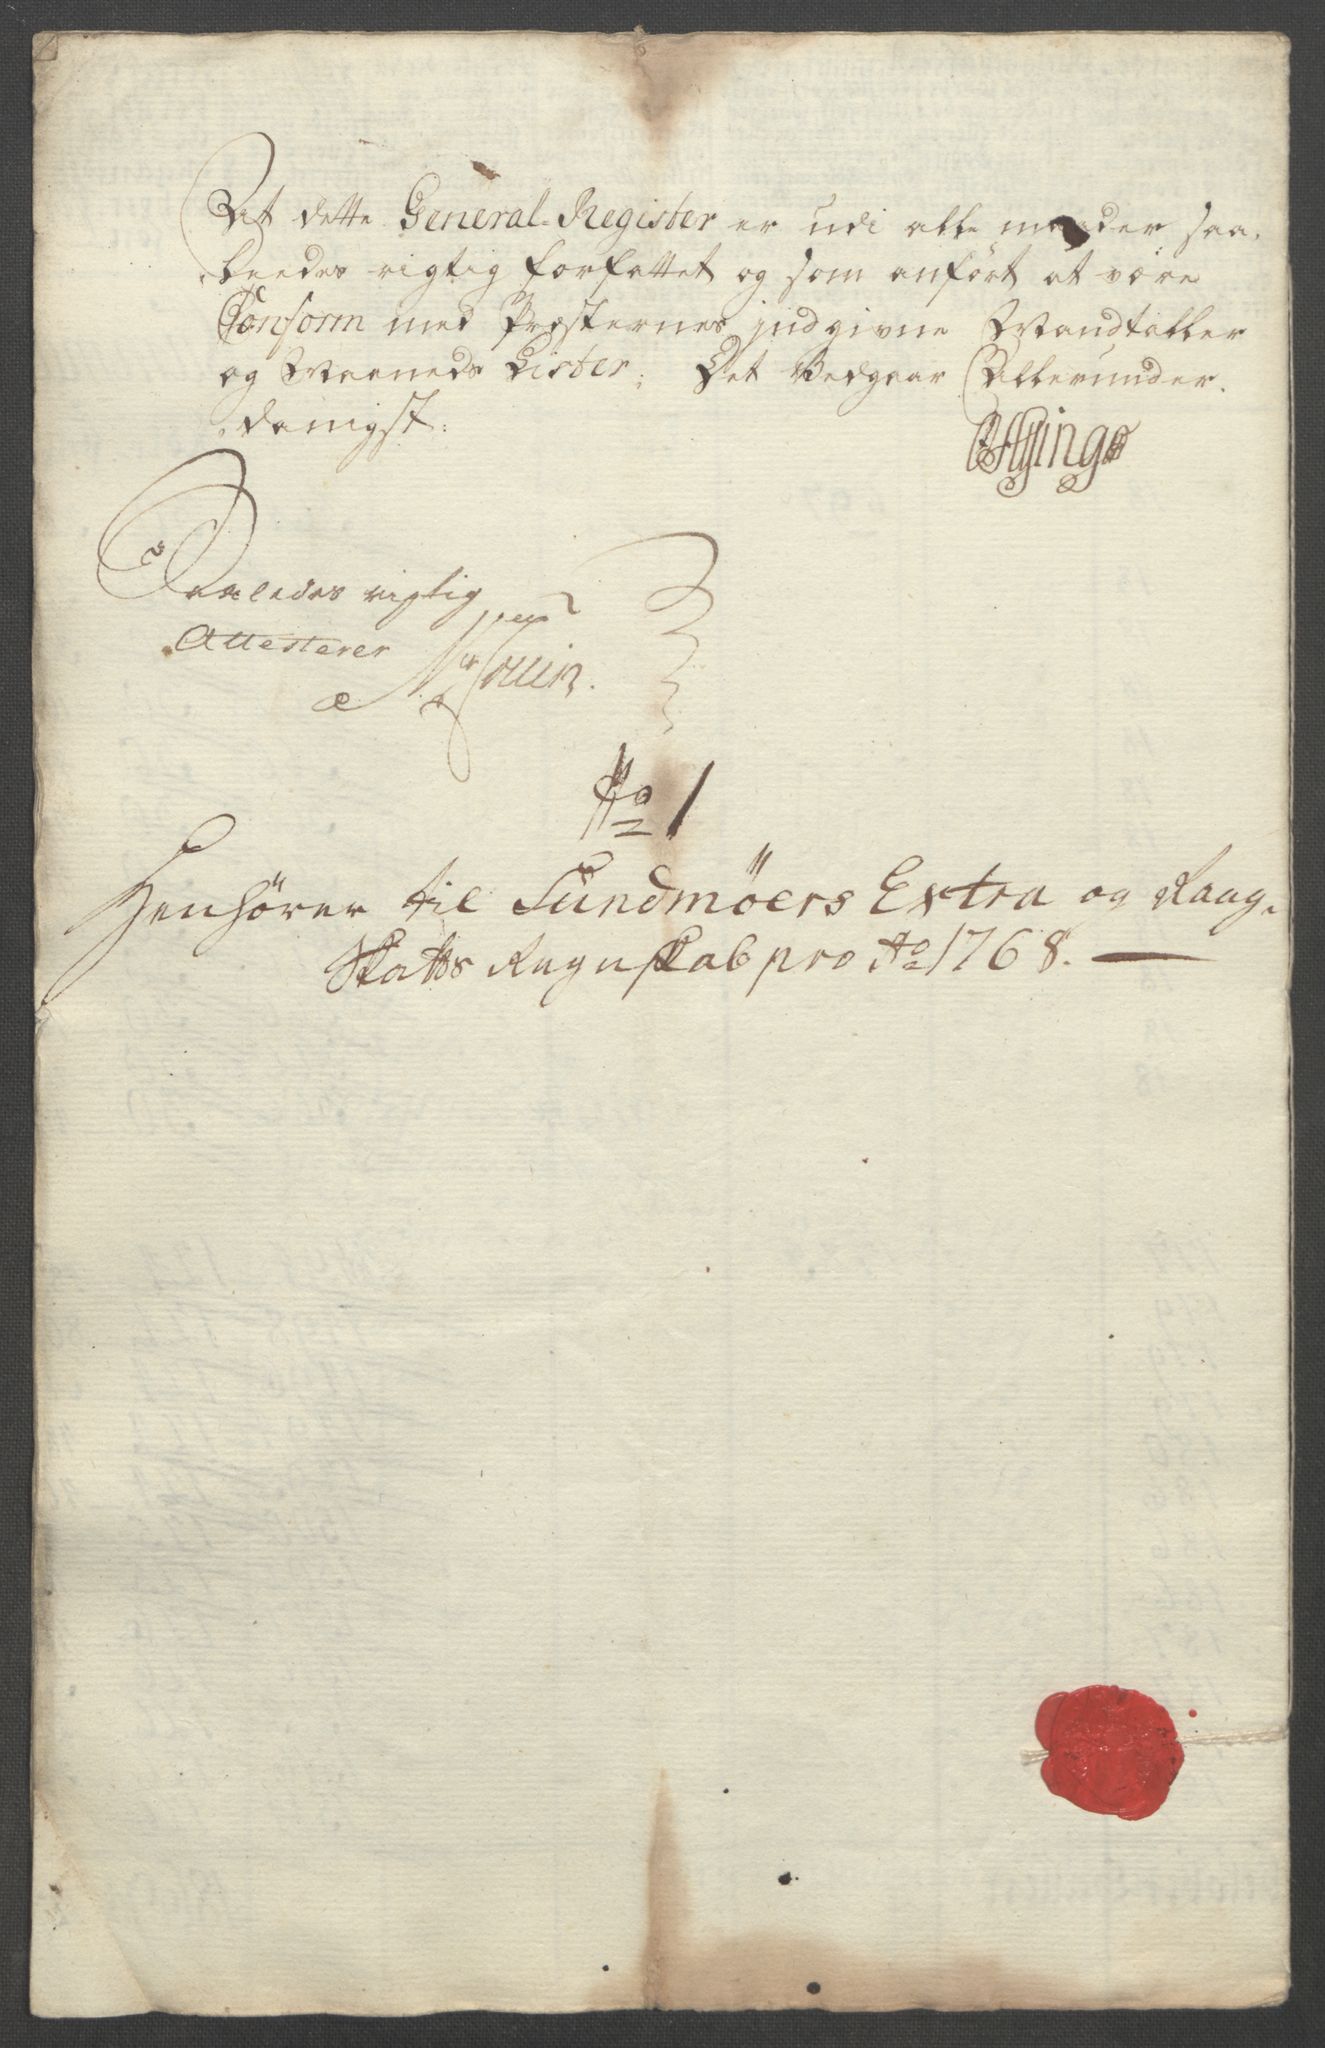 At dette General-Register er udi alle maader saa-
leedes rigtig forfattet og som anført at være
Conform med Præsternes indgivne Mandtaller
og Maaneds Lister; Det Vedgaar Allerunder-
danigst.
Saaledes rigtig
Attesterer
No 1
Henhører til Sundmöers Extra og Kaag-
Skatts Regnskab pro Ao 1768.